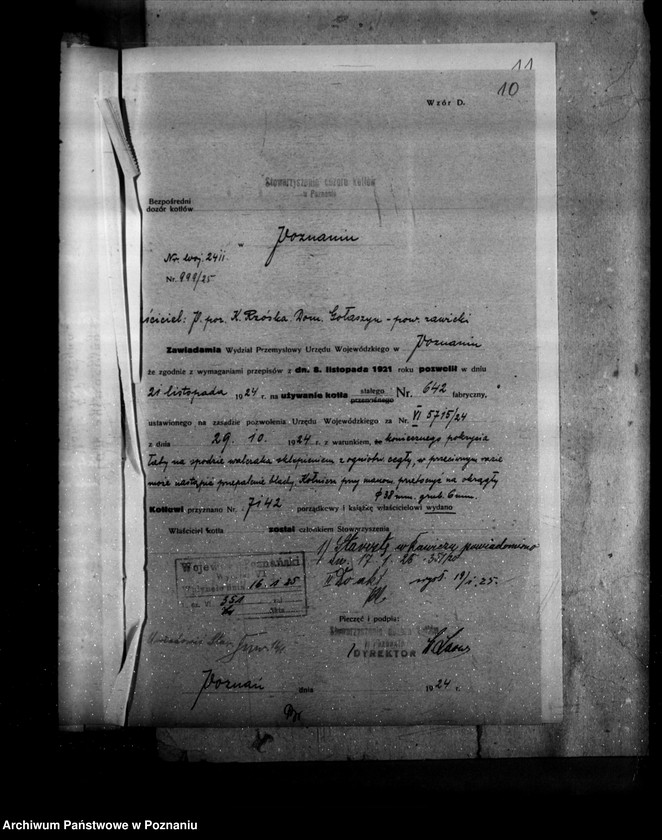 11
10
Wzór D.
Stowarzyszenie dozoru kotłów
w Poznaniu
Bezpośredni
dozór kotłów
w Poznaniu
Nr. woj. 2411.
Nr. 999/25
ściciel: P. por. K. Rzóska. Dom. Gołaszyn - pow. rawicki
Zawiadamia Wydział Przemysłowy Urzędu Wojewódzkiego w Poznaniu
że zgodnie z wymaganiami przepisów z dn. 8. listopada 1921 roku pozwolił w dniu
21 listopada 1924 r. na używanie kotła stałego przenośnego Nr. 642 fabryczny,
ustawionego na zasadzie pozwolenia Urzędu Wojewódzkiego za Nr. VI 5715/24
z dnia 29. 10. 1924 r. z warunkiem, koniecznego pokrycia
łaty na spodzie walczaka sklepieniem z ogniotr. cegły, w przeciwnym razie
może nastąpić przepalenie blachy. Kołnierz przy manom. przetoczyć na okrągły
φ 38 mm. grub. 6 mm.
Kotłowi przyznano Nr. 7142 porządkowy i książkę właścicielowi wydano
Właściciel kotła został członkiem Stowarzyszenia
1) Starostę w Rawiczu powiadomiono
dn. 17. 1. 25.
Wojewoda Poznański
16. 1. 25
L. cz. VI 351
II Do akt
wysł. 19/I. 25.
Pieczęć i podpis:
Stowarzyszenie dozoru kotłów
w Poznaniu
DYREKTOR
Poznań, dnia 1924 r.
Archiwum Państwowe w Poznaniu